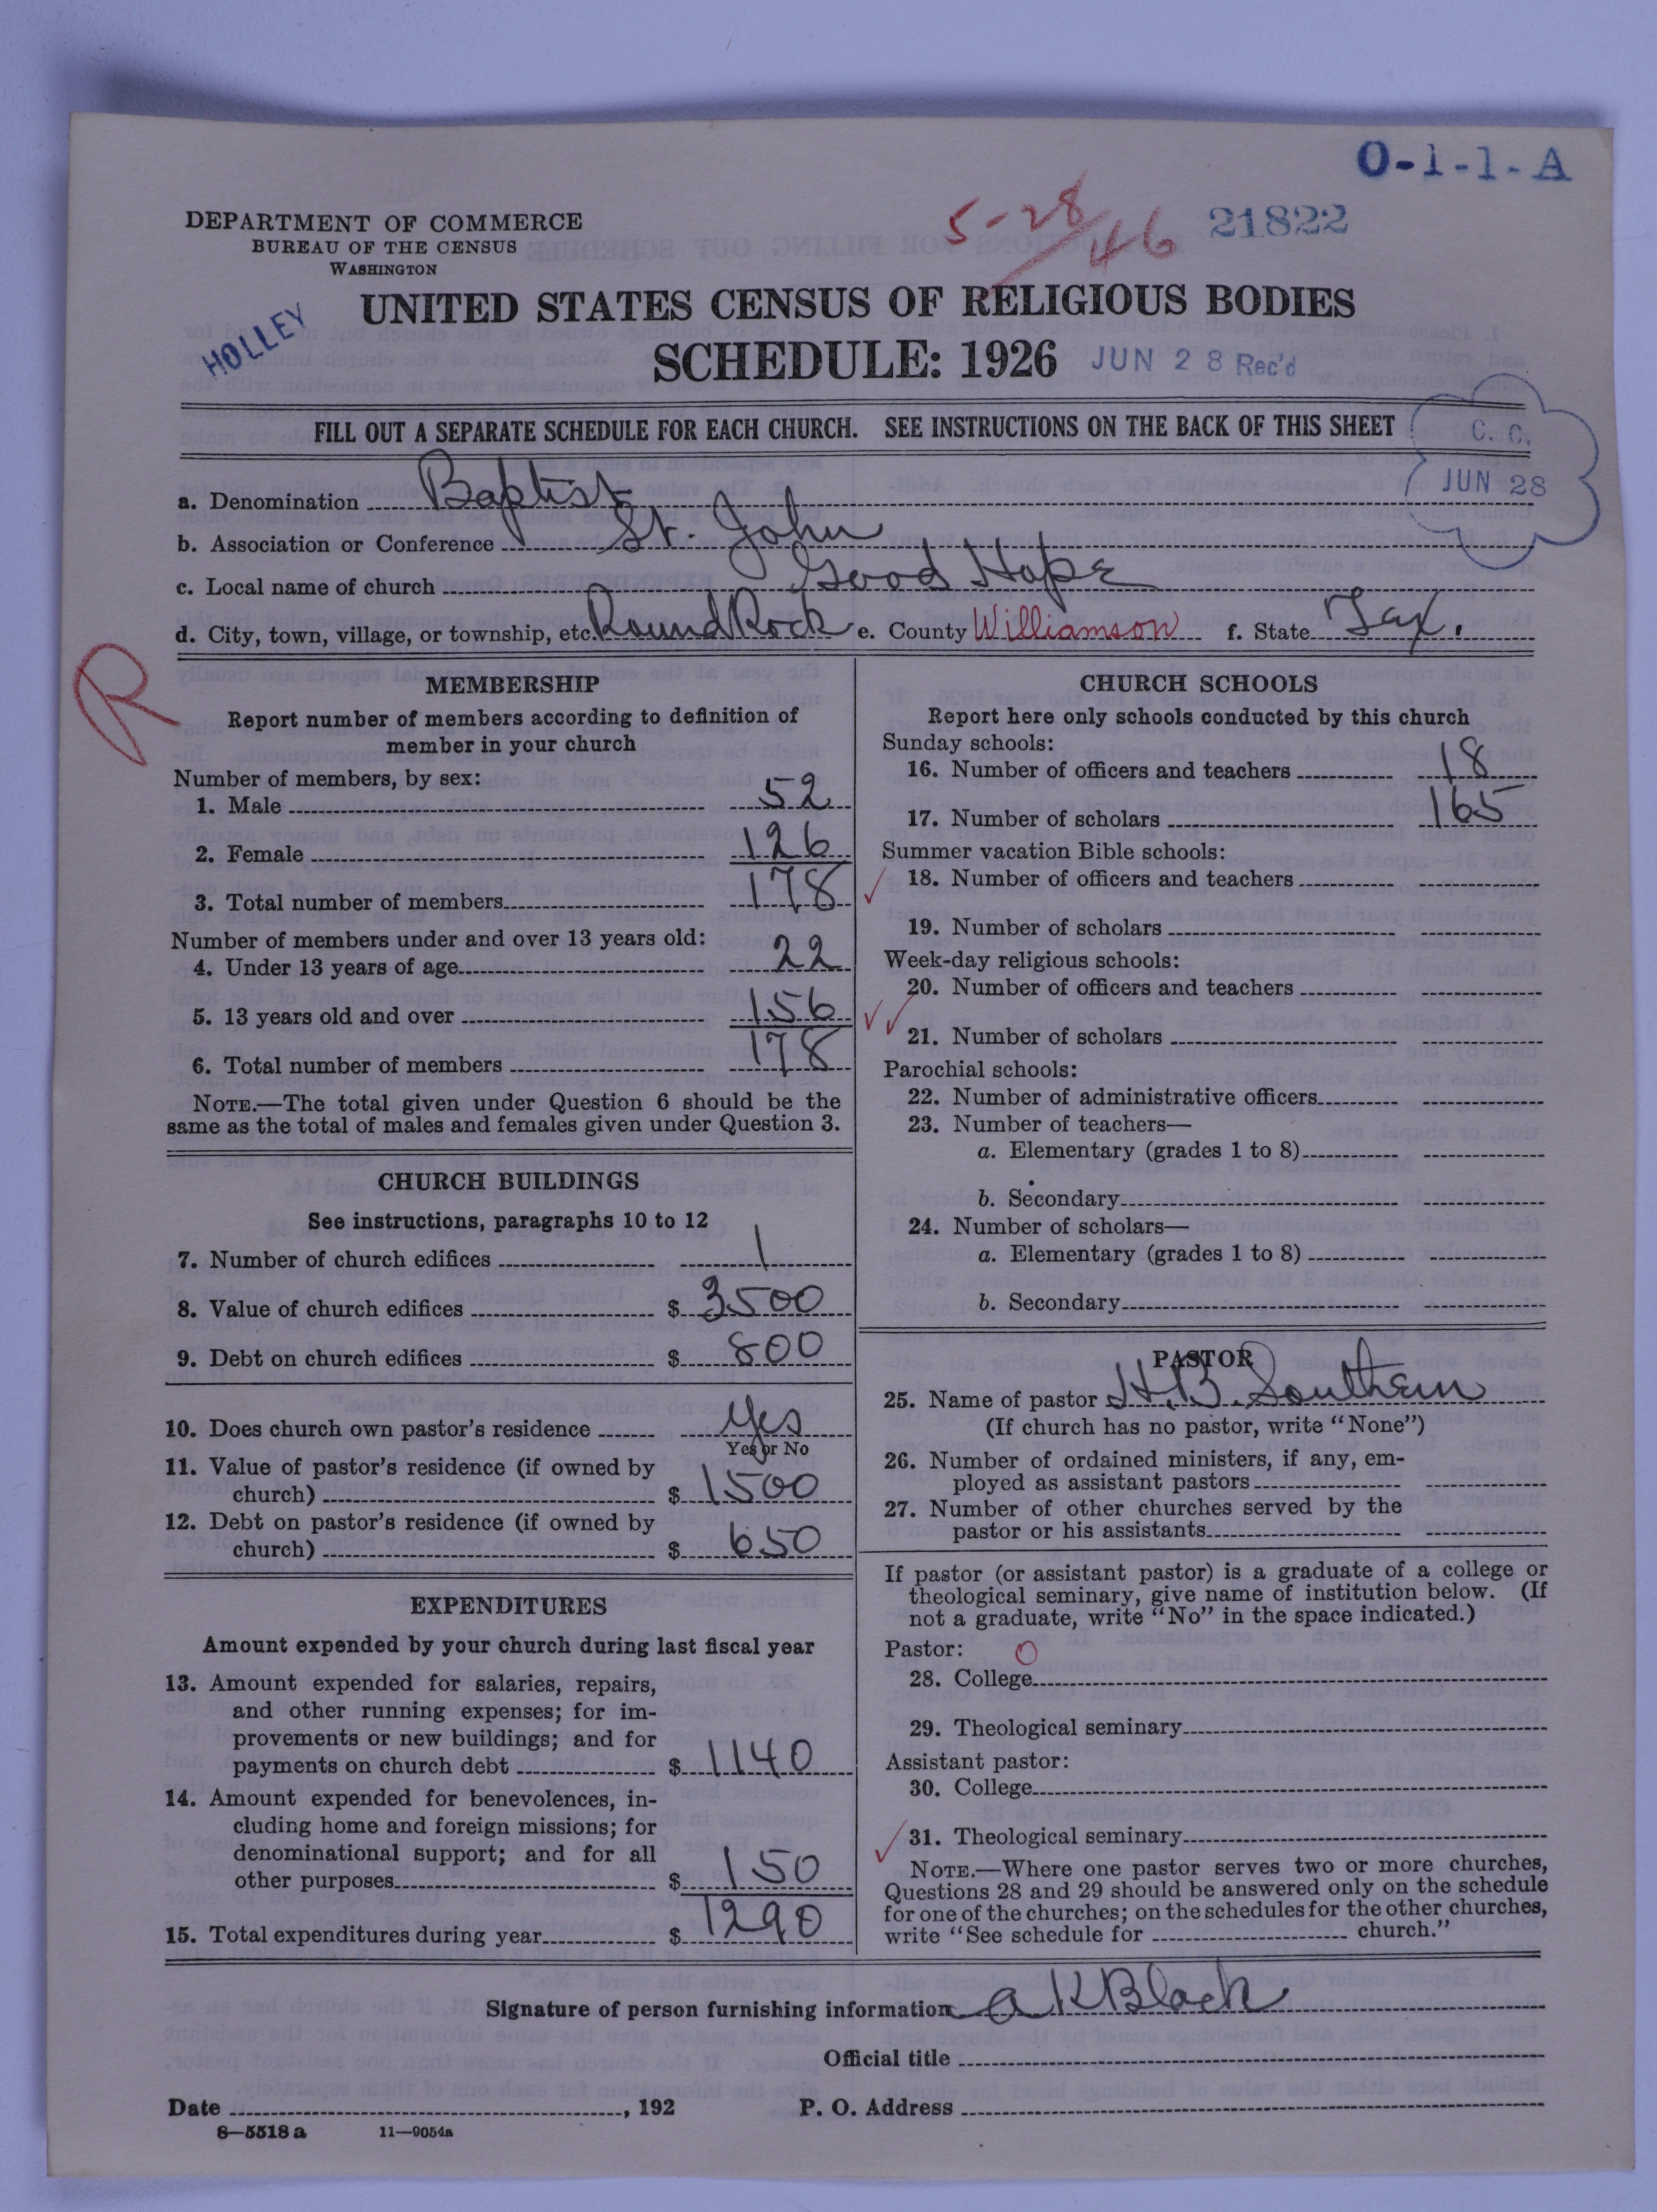 O-1-1-A
DEPARTMENT OF COMMERCE
BUREAU OF THE CENSUS
WASHINGTON
5-28/46 21822
HOLLEY
UNITED STATES CENSUS OF RELIGIOUS BODIES
SCHEDULE: 1926 JUN 28 Rec'd
FILL OUT A SEPARATE SCHEDULE FOR EACH CHURCH. SEE INSTRUCTIONS ON THE BACK OF THIS SHEET
C. C.
JUN 28
a. Denomination Baptist
b. Association or Conference St. John
c. Local name of church Good Hope
d. City, town, village, or township, etc. Round Rock e. County Williamson f. State Tex.
R
MEMBERSHIP
Report number of members according to definition of
member in your church
Number of members, by sex:
1. Male 52
2. Female 126
3. Total number of members 178
Number of members under and over 13 years old:
4. Under 13 years of age 22
5. 13 years old and over 156
6. Total number of members 178
NOTE.—The total given under Question 6 should be the
same as the total of males and females given under Question 3.
CHURCH BUILDINGS
See instructions, paragraphs 10 to 12
7. Number of church edifices 1
8. Value of church edifices $ 3500
9. Debt on church edifices $ 800
10. Does church own pastor's residence Yes
Yes or No
11. Value of pastor's residence (if owned by
church) $ 1500
12. Debt on pastor's residence (if owned by
church) $ 650
EXPENDITURES
Amount expended by your church during last fiscal year
13. Amount expended for salaries, repairs,
and other running expenses; for im-
provements or new buildings; and for
payments on church debt $ 1140
14. Amount expended for benevolences, in-
cluding home and foreign missions; for
denominational support; and for all
other purposes $ 150
15. Total expenditures during year $ 1290
CHURCH SCHOOLS
Report here only schools conducted by this church
Sunday schools:
16. Number of officers and teachers 18
17. Number of scholars 165
Summer vacation Bible schools:
18. Number of officers and teachers
19. Number of scholars
Week-day religious schools:
20. Number of officers and teachers
21. Number of scholars
Parochial schools:
22. Number of administrative officers
23. Number of teachers—
a. Elementary (grades 1 to 8)
b. Secondary
24. Number of scholars—
a. Elementary (grades 1 to 8)
b. Secondary
PASTOR
25. Name of pastor H. B. Southern
(If church has no pastor, write "None")
26. Number of ordained ministers, if any, em-
ployed as assistant pastors
27. Number of other churches served by the
pastor or his assistants
If pastor (or assistant pastor) is a graduate of a college or
theological seminary, give name of institution below. (If
not a graduate, write "No" in the space indicated.)
Pastor: O
28. College
29. Theological seminary
Assistant pastor:
30. College
31. Theological seminary
NOTE.—Where one pastor serves two or more churches,
Questions 28 and 29 should be answered only on the schedule
for one of the churches; on the schedules for the other churches,
write "See schedule for church."
Signature of person furnishing information A K Black
Official title
Date , 192 P. O. Address
8—5518 a 11—9054a